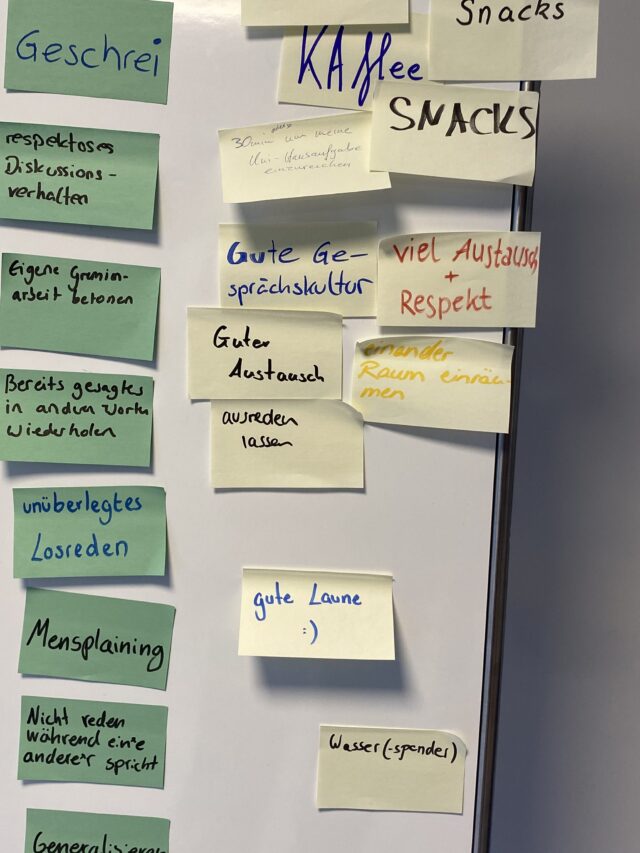 Geschrei
respektoses
Diskussions-
verhalten
Eigene Gremin-
arbeit betonen
Bereits gesagtes
in andern Worten
wiederholen
unüberlegtes
Losreden
Mensplaining
Nicht reden
während ein*e
andere*r spricht
Generalisieren
Snacks
KAffee
SNACKS
30min um meine
Uni-Hausaufgabe
einzureichen
Gute Ge-
sprächskultur
viel Austausch
+
Respekt
Guter
Austausch
einander
Raum einräu-
men
ausreden
lassen
gute Laune
:)
Wasser(-spender)